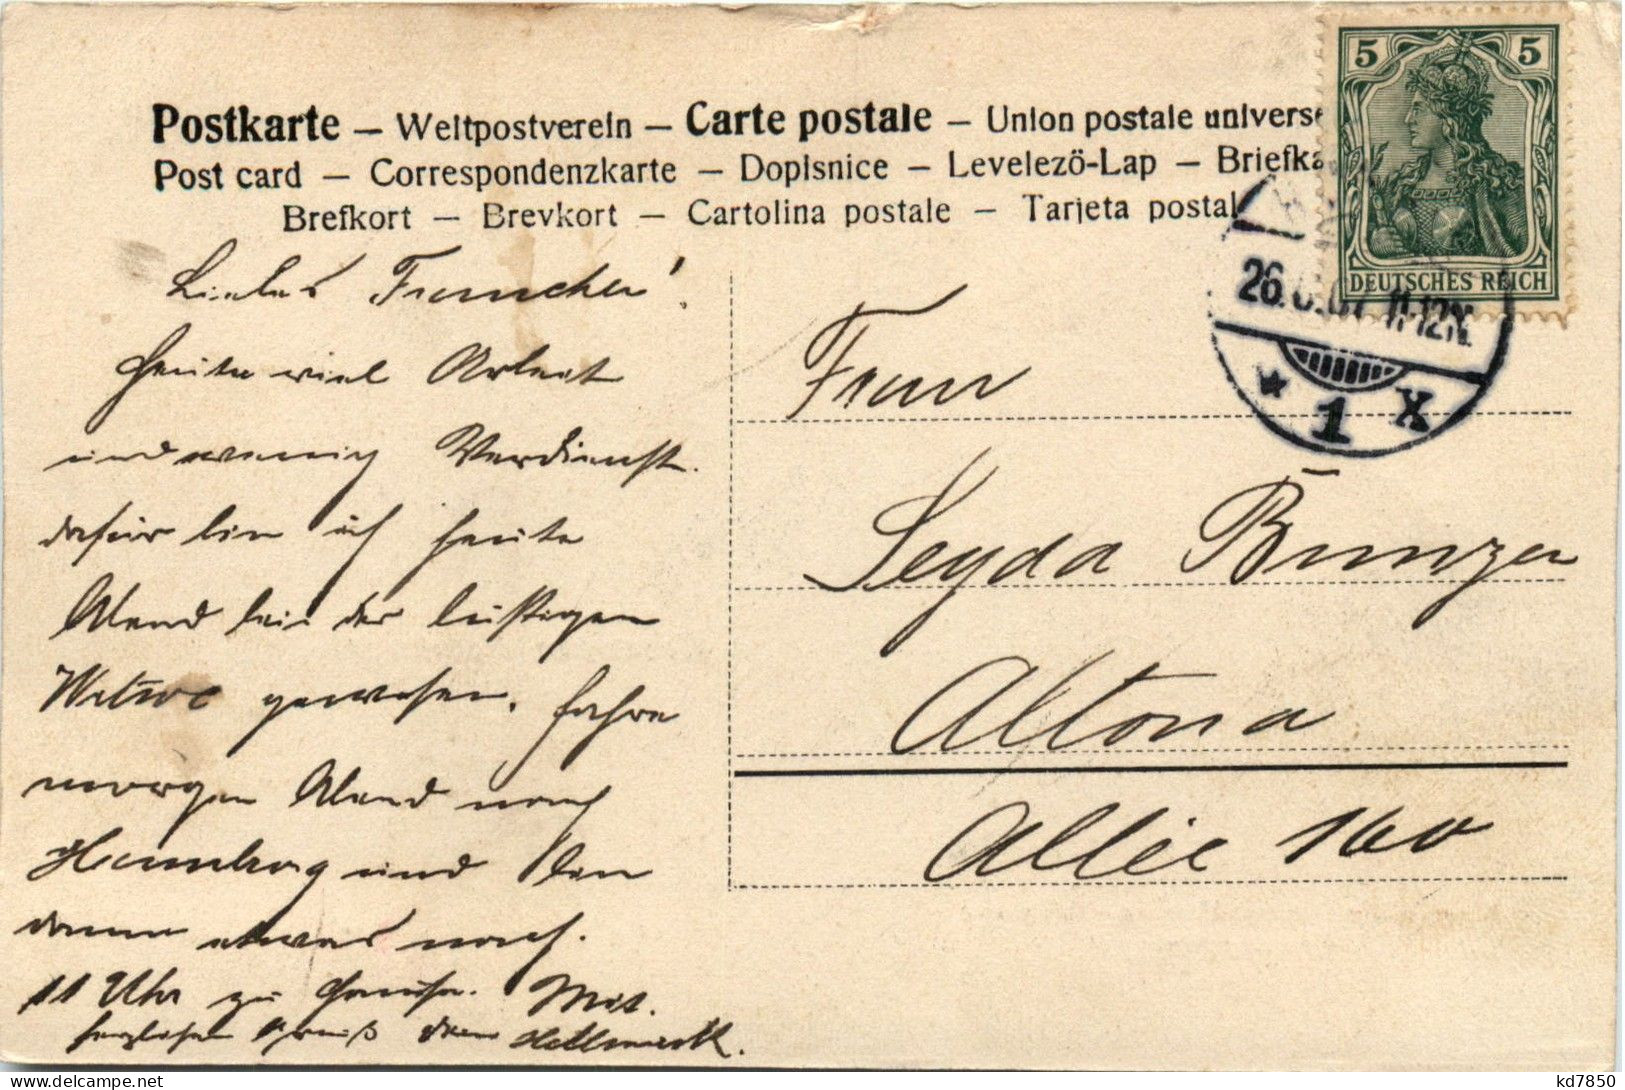 Postkarte – Weltpostverein – Carte postale – Union postale univers
Post card – Correspondenzkarte – Dopisnice – Levelezö-Lap – Briefka
Brefkort – Brevkort – Cartolina postale – Tarjeta postal
5 5
DEUTSCHES REICH
26. 11-12N.
* 1 X
Liebes Frauchen!
Heute viel Arbeit
und wenig Verdienst.
dafür bin ich heute
Abend bei der lustigen
Witwe gewesen. fahre
morgen Abend nach
Hamburg und bin
dann etwas nach.
11 Uhr zu Hause. Mit.
herzlichen Gruß Dein
Frau
Seyda Bunzen
Altona
Allee 160
kd7850